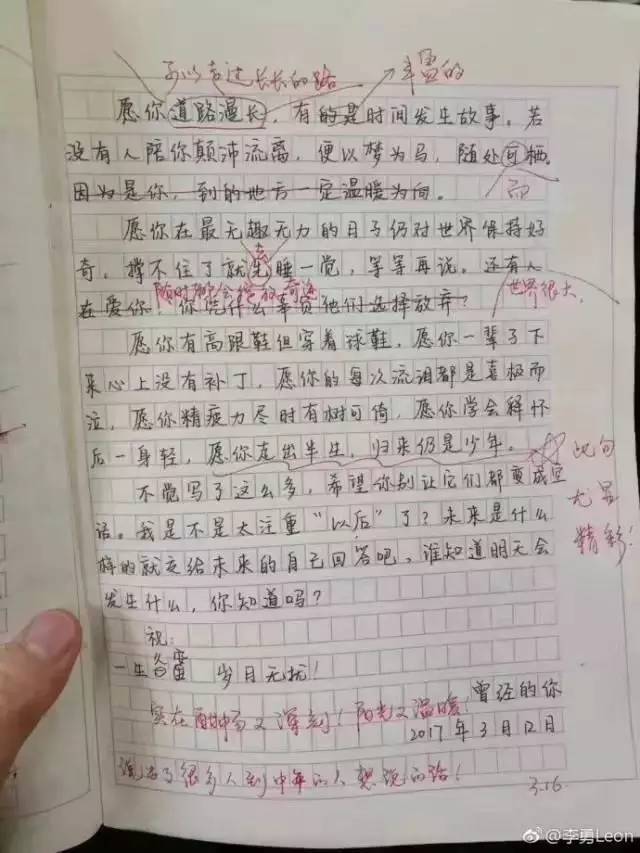 可以走过长长的路 丰富的
愿你道路漫长，有的是时间发生故事。若
没有人陪你颠沛流离，便以梦为马，随处可栖。
因为是你，到的地方一定温暖为向。 而
愿你在最无趣无力的日子仍对世界保持好
奇，撑不住了就先睡一觉，等等再说。还有人
在爱你！你凭什么辜负他们选择放弃？
随时都会 奇迹 世界很大
愿你有高跟鞋但穿着球鞋，愿你一辈子下
来心上没有补丁，愿你的每次流泪都是喜极而
泣，愿你精疲力尽时有树可倚，愿你学会释怀
后一身轻，愿你走出半生，归来仍是少年。
此句
尤其
精彩！
不觉写了这么多，希望你别让它们都变成空
话。我是不是太注重“以后”了？未来是什么
样的就交给未来的自己回答吧，谁知道明天会
发生什么，你知道吗？
祝：
一生 岁月无扰！
曾经的你
实在酣畅又深刻！阳光又温暖！
2017年3月12日
说出了很多人到中年的人想说的话！
3.16
@李勇Leon